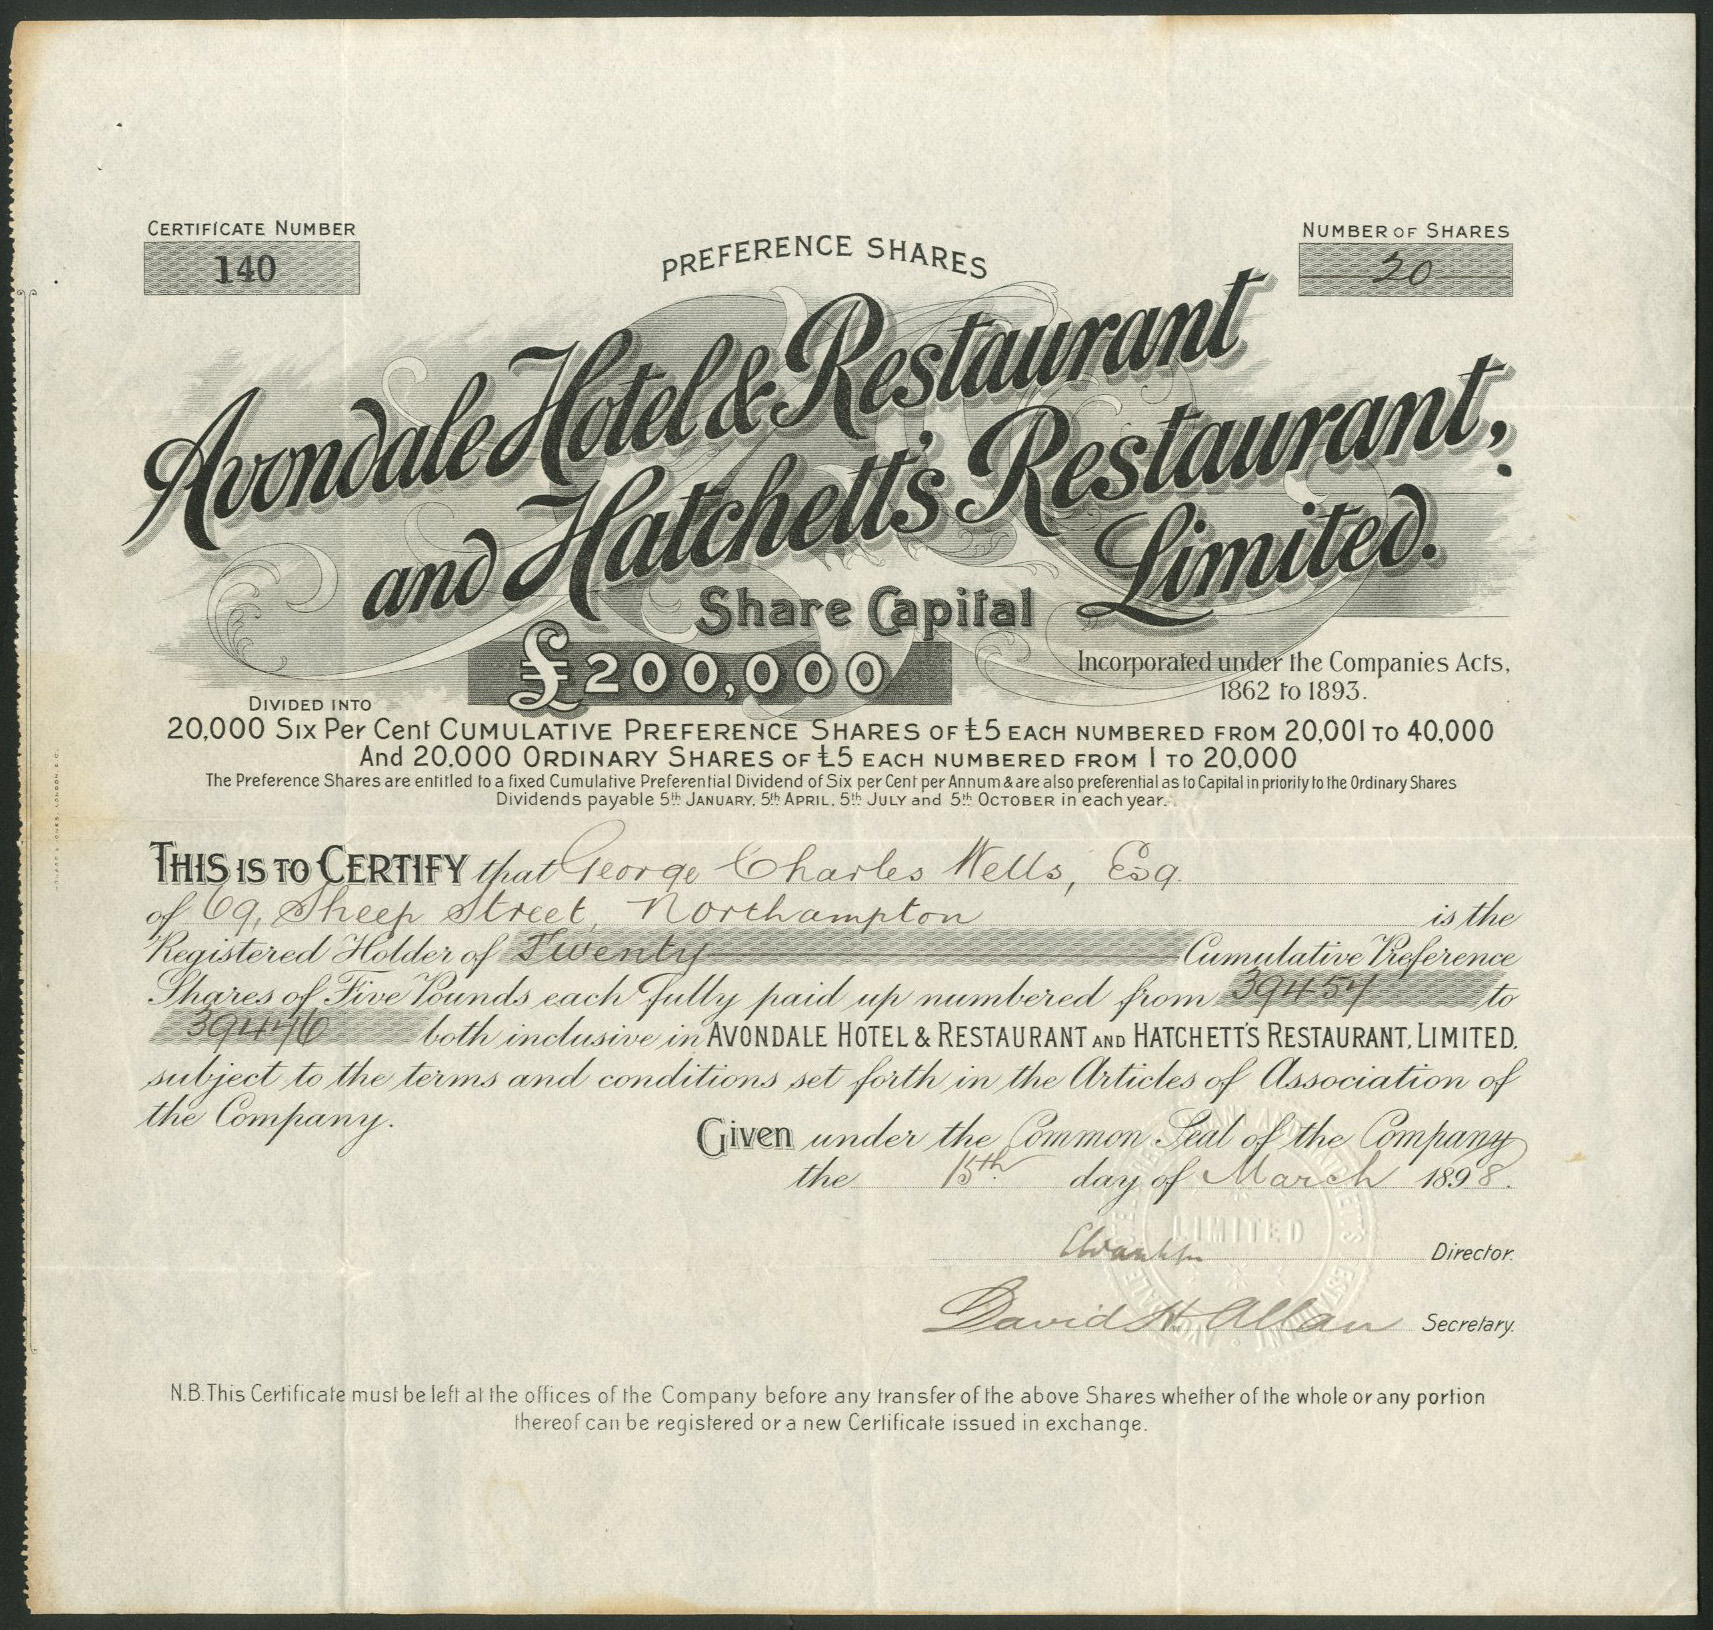 CERTIFICATE NUMBER
140
NUMBER OF SHARES
20
PREFERENCE SHARES
Avondale Hotel & Restaurant
and Hatchett's Restaurant,
Limited.
Share Capital
£200,000
Incorporated under the Companies Acts,
1862 to 1893.
DIVIDED INTO
20,000 SIX PER CENT CUMULATIVE PREFERENCE SHARES OF £5 EACH NUMBERED FROM 20,001 TO 40,000
And 20,000 ORDINARY SHARES OF £5 EACH NUMBERED FROM 1 TO 20,000
The Preference Shares are entitled to a fixed Cumulative Preferential Dividend of Six per Cent per Annum & are also preferential as to Capital in priority to the Ordinary Shares
Dividends payable 5th JANUARY, 5th APRIL, 5th JULY and 5th OCTOBER in each year.
THIS IS TO CERTIFY that George Charles Wells, Esq.
of 69, Sheep Street, Northampton is the
Registered Holder of Twenty Cumulative Preference
Shares of Five Pounds each fully paid up numbered from 39457 to
39476 both inclusive in AVONDALE HOTEL & RESTAURANT AND HATCHETT'S RESTAURANT, LIMITED,
subject to the terms and conditions set forth in the Articles of Association of
the Company.
Given under the Common Seal of the Company
the 15th day of March 1898.
LIMITED
Director.
David H. Allan Secretary.
N.B. This Certificate must be left at the offices of the Company before any transfer of the above Shares whether of the whole or any portion
thereof can be registered or a new Certificate issued in exchange.